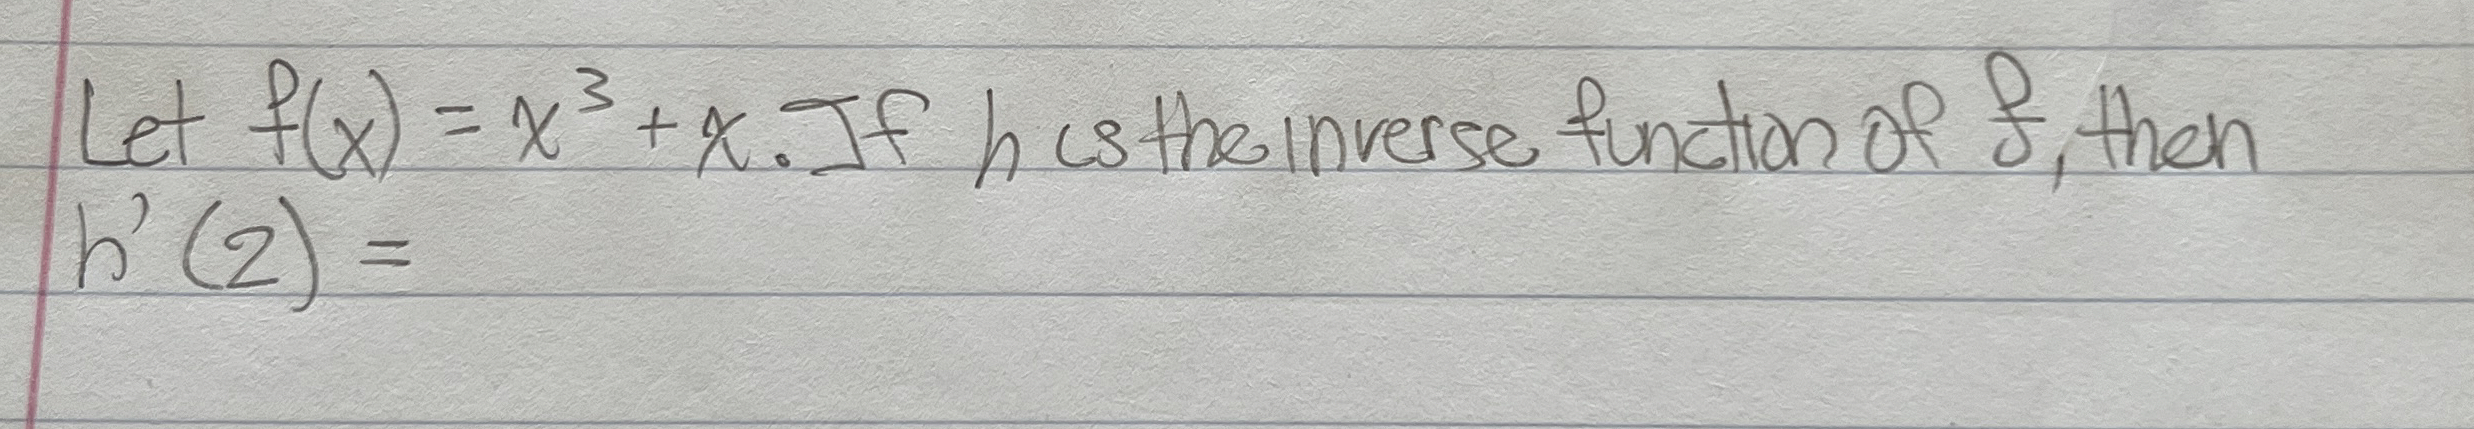 Let f(x) = x³ + x. If h is the inverse function of f, then
h'(2) =